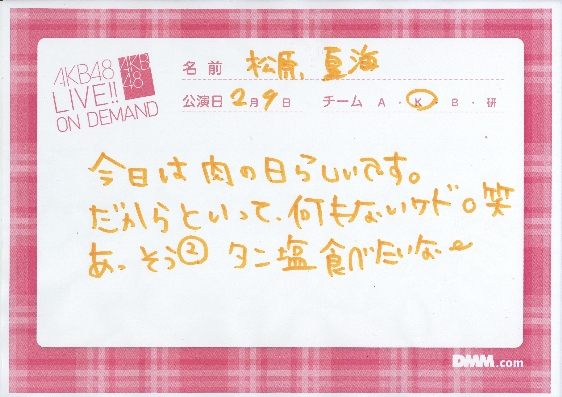 AKB48
LIVE!!
ON DEMAND
AKB
48
名前 松原 夏海
公演日 2月9日 チーム A・K・B・研
今日は肉の日らしいです。
だからといって、何もないケド。笑
あっそう② タン塩食べたいなぁ
DMM.com